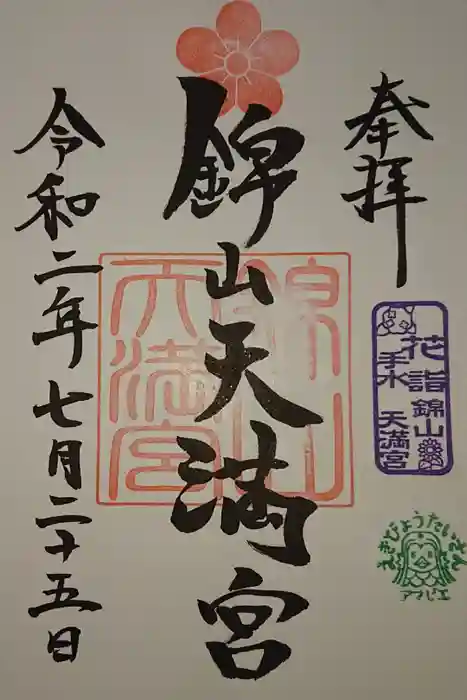 奉拝
錦山天満宮
令和二年七月二十五日
錦山
天満宮
花詣 錦山
手水 天満宮
えきびょうたいさん
アマビエ